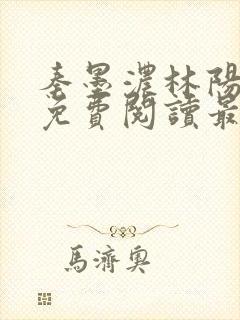 秦墨濃林陽
免費閱讀最
馬濟奧